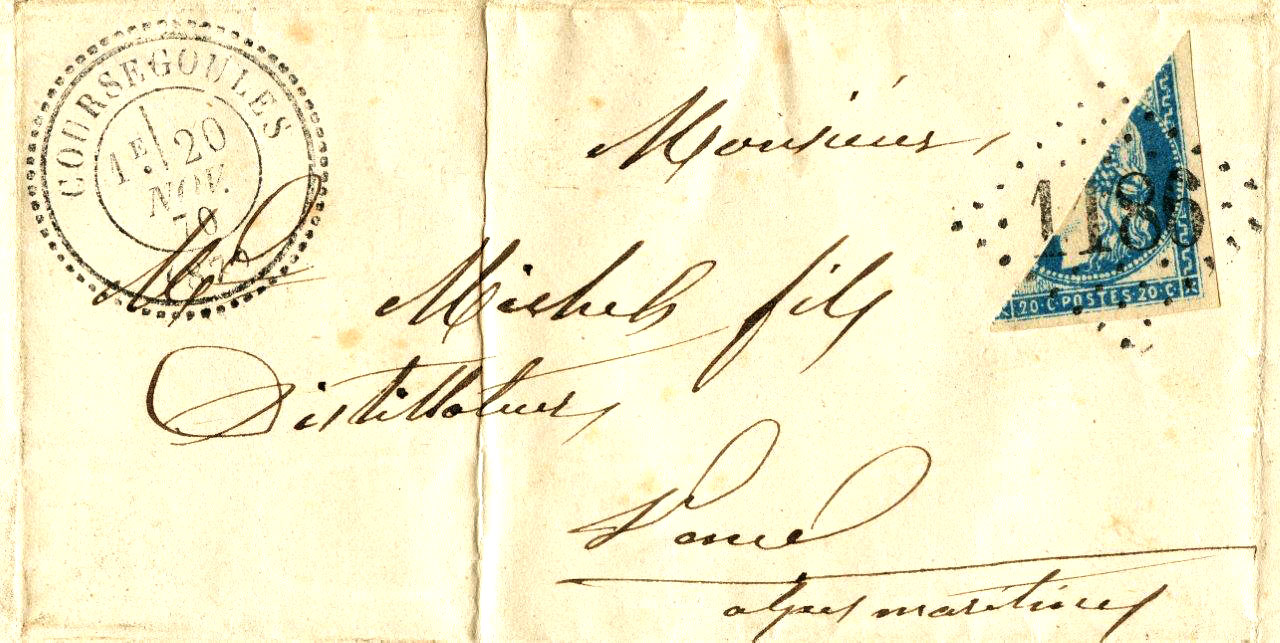 COURSEGOULES
1E 20
NOV.
70
Monsieur
1186
20·C POSTES 20·C
Mr Michel fils
Distillateur
Vence
alpes maritimes